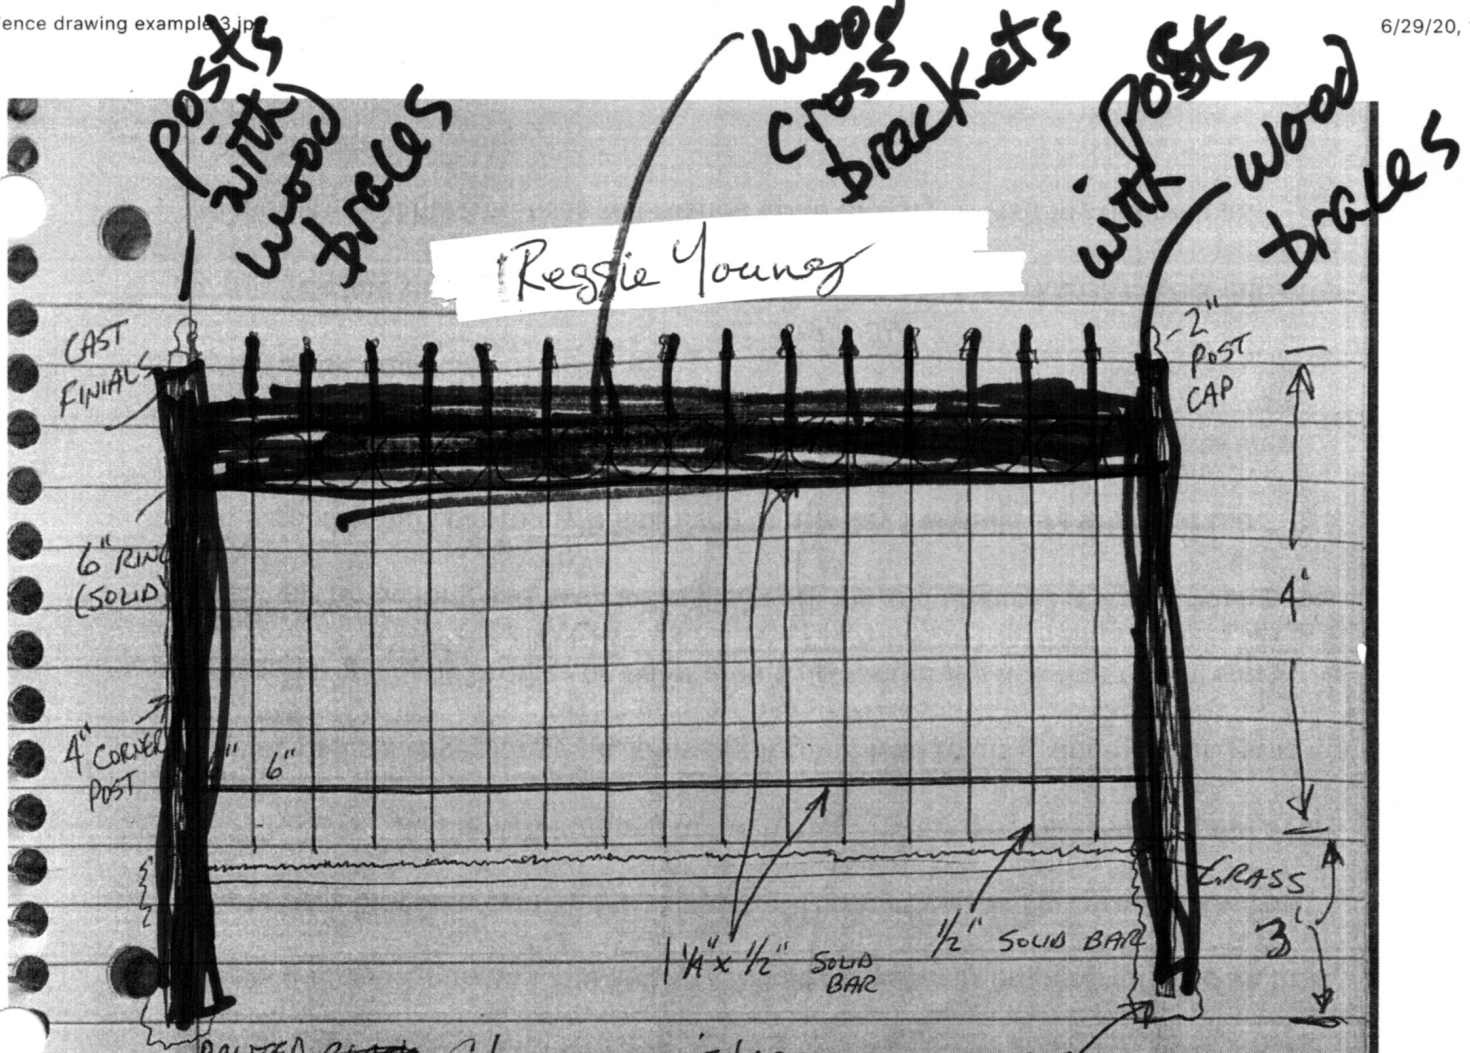 ence drawing example 3.jpg
6/29/20,
Posts
with
wood
braces
wood
cross
brackets
Posts
with
wood
braces
Reggie Young
CAST
FINIALS
2"
POST
CAP
6" RING
(SOLID)
4'
4" CORNER
POST
6"
GRASS
3'
1 1/4" x 1/2" SOLID
BAR
1/2" SOLID BAR